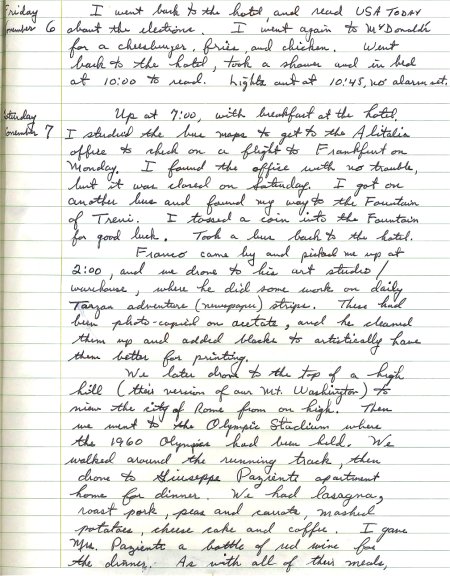 Friday I went back to the hotel, and read USA TODAY
November 6 about the elections. I went again to McDonalds
for a cheeseburger, fries, and chicken. Went
back to the hotel, took a shower and in bed
at 10:00 to read. Lights out at 10:45, no alarm set.
Saturday Up at 7:00, with breakfast at the hotel.
November 7 I studied the bus maps to get to the Alitalia
office to check on a flight to Frankfurt on
Monday. I found the office with no trouble,
but it was closed on Saturday. I got on
another bus and found my way to the Fountain
of Trevi. I tossed a coin into the Fountain
for good luck. Took a bus back to the hotel.
Franco came by and picked me up at
2:00, and we drove to his art studio /
warehouse, where he did some work on daily
Tarzan adventure (newspaper) strips. These had
been photo-copied on acetate, and he cleaned
them up and added blacks to artistically have
them better for printing.
We later drove to the top of a high
hill (their version of our Mt. Washington) to
view the city of Rome from on high. Then
we went to the Olympic Stadium where
the 1960 Olympics had been held. We
walked around the running track, then
drove to Giuseppe Pazienti apartment
home for dinner. We had lasagna,
roast pork, peas and carrots, mashed
potatoes, cheese cake and coffee. I gave
Mrs. Pazienti a bottle of red wine for
the dinner. As with all of their meals,